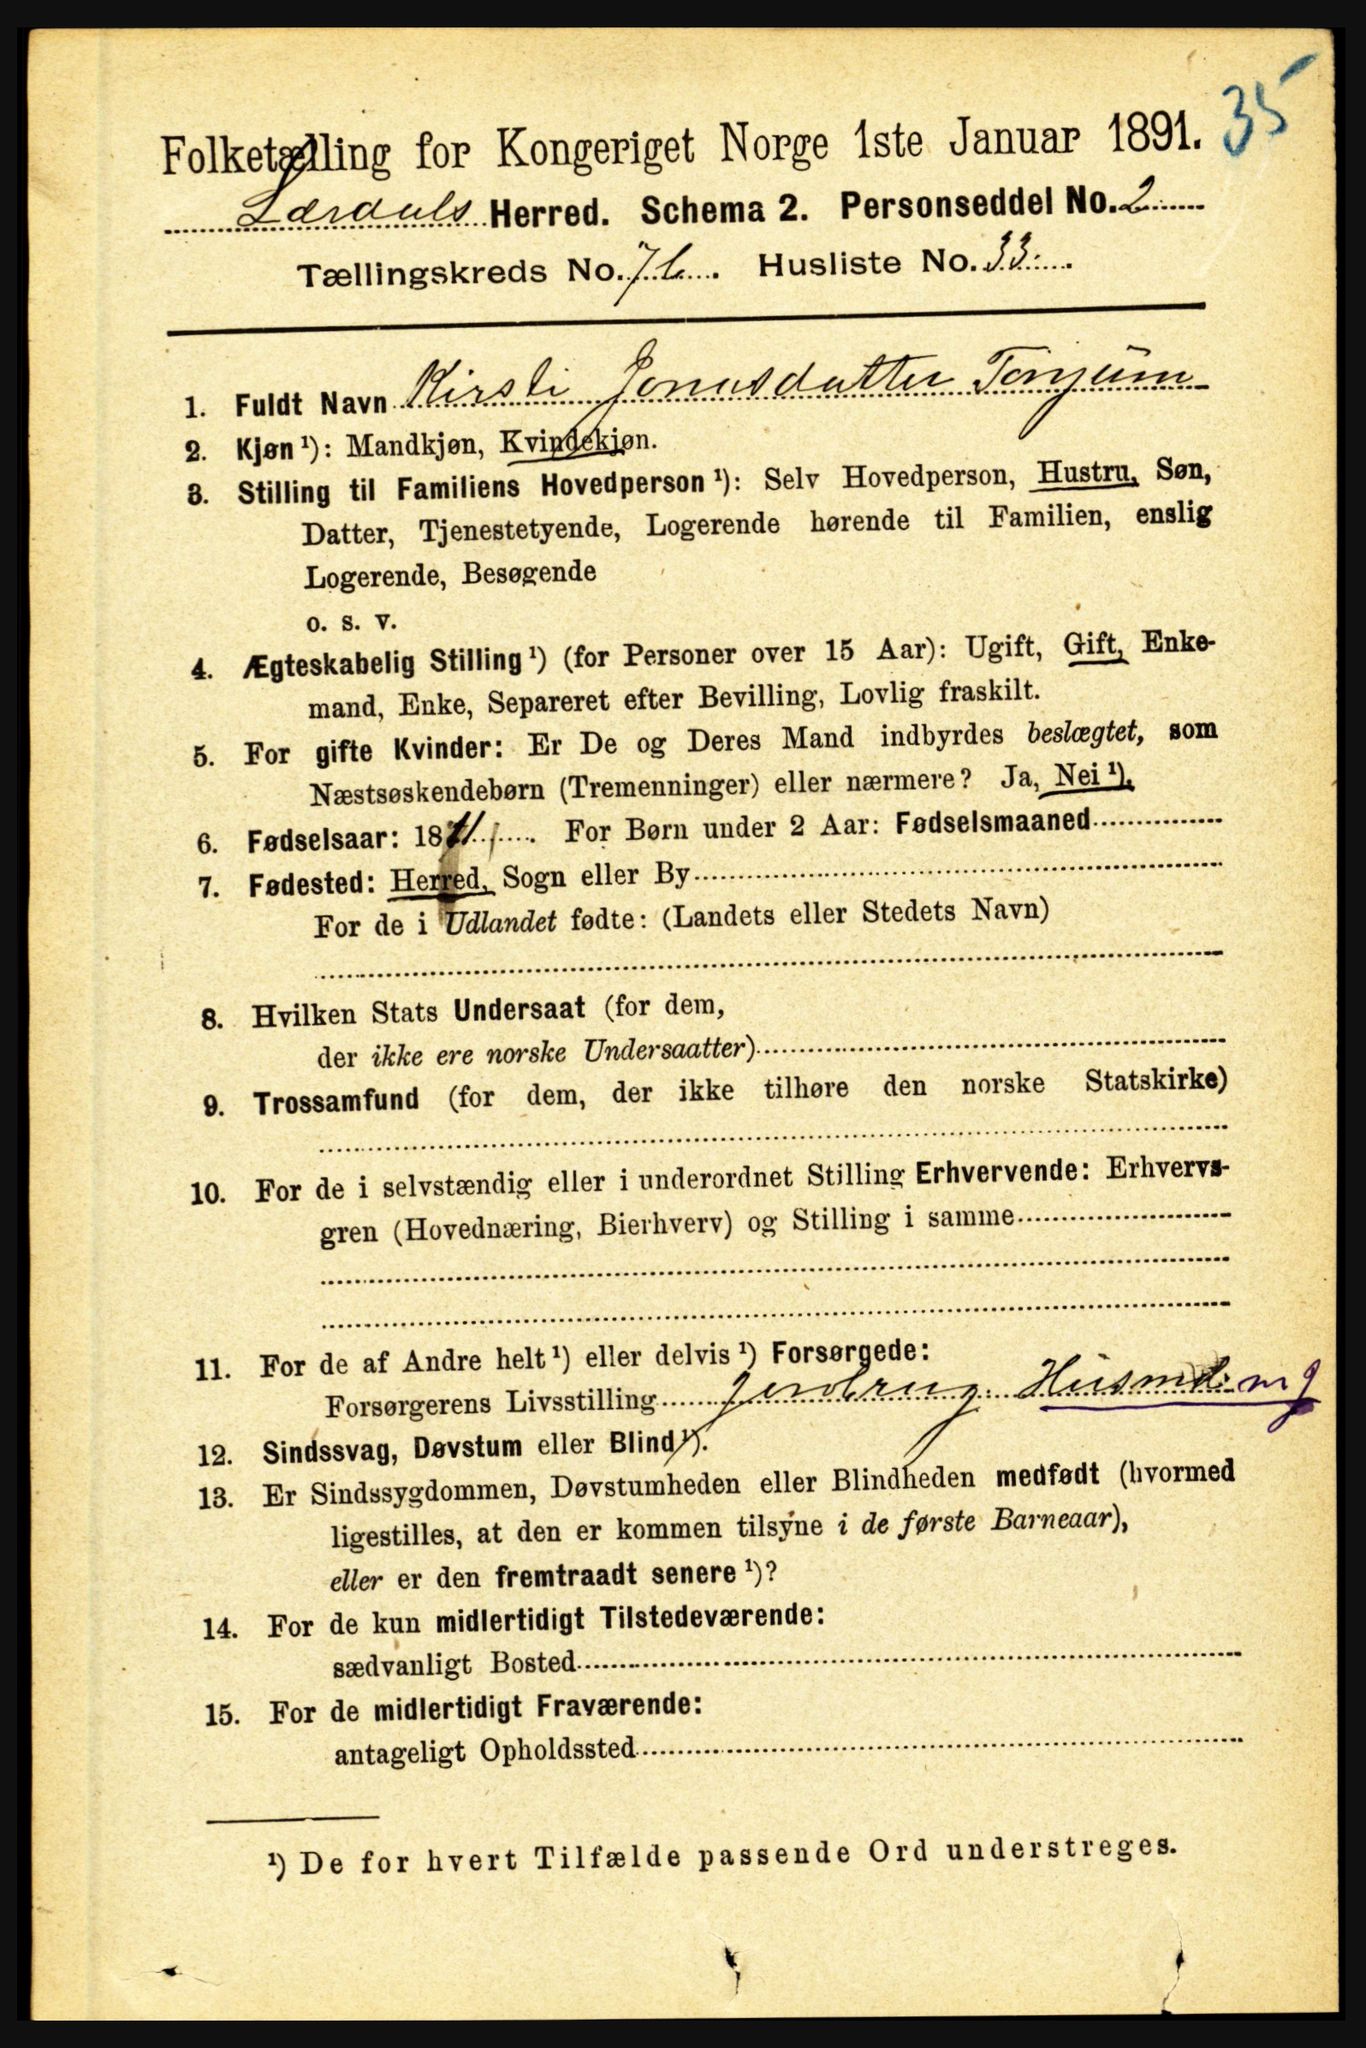 35
Folketælling for Kongeriget Norge 1ste Januar 1891.
Lærdals Herred. Schema 2. Personseddel No. 2
Tællingskreds No. 7b. Husliste No. 33.
1. Fuldt Navn Kirsti Jonasdatter Tonjum
2. Kjøn ¹): Mandkjøn, Kvindekjøn.
3. Stilling til Familiens Hovedperson ¹): Selv Hovedperson, Hustru, Søn,
Datter, Tjenestetyende, Logerende hørende til Familien, enslig
Logerende, Besøgende
o. s. v.
4. Ægteskabelig Stilling ¹) (for Personer over 15 Aar): Ugift, Gift, Enke-
mand, Enke, Separeret efter Bevilling, Lovlig fraskilt.
5. For gifte Kvinder: Er De og Deres Mand indbyrdes beslægtet, som
Næstsøskendebørn (Tremenninger) eller nærmere? Ja, Nei ¹).
6. Fødselsaar: 18 . For Børn under 2 Aar: Fødselsmaaned
7. Fødested: Herred, Sogn eller By
For de i Udlandet fødte: (Landets eller Stedets Navn)
8. Hvilken Stats Undersaat (for dem,
der ikke ere norske Undersaatter)
9. Trossamfund (for dem, der ikke tilhøre den norske Statskirke)
10. For de i selvstændig eller i underordnet Stilling Erhvervende: Erhvervs-
gren (Hovednæring, Bierhverv) og Stilling i samme
11. For de af Andre helt ¹) eller delvis ¹) Forsørgede:
Forsørgerens Livsstilling Jordbrug. Husmd: m J
12. Sindssvag, Døvstum eller Blind ¹).
13. Er Sindssygdommen, Døvstumheden eller Blindheden medfødt (hvormed
ligestilles, at den er kommen tilsyne i de første Barneaar),
eller er den fremtraadt senere ¹)?
14. For de kun midlertidigt Tilstedeværende:
sædvanligt Bosted
15. For de midlertidigt Fraværende:
antageligt Opholdssted
¹) De for hvert Tilfælde passende Ord understreges.